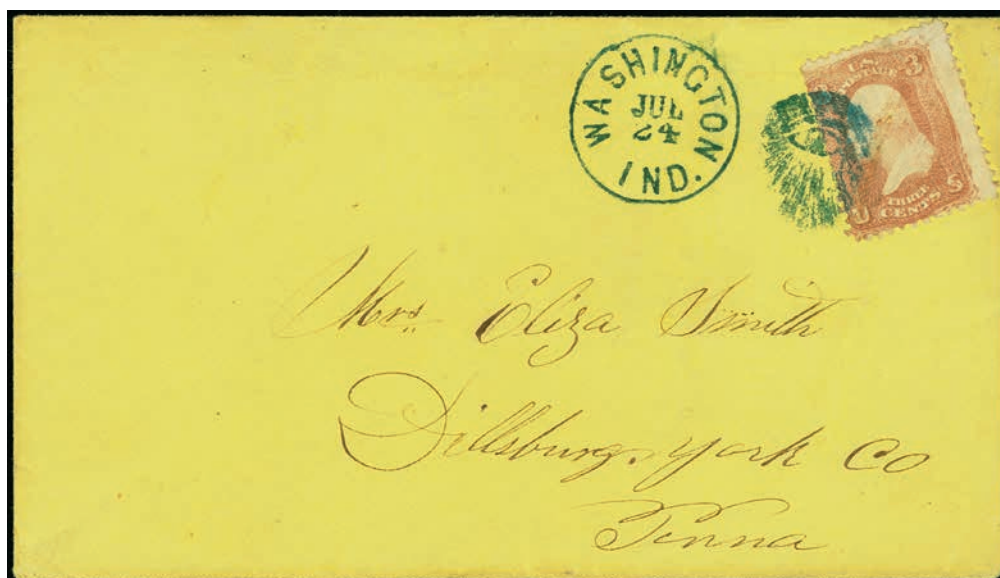 WASHINGTON
JUL
24
IND.
U.S.
POSTAGE 3
U S
THREE
CENTS
Mrs. Eliza Smith
Dillsburg. York Co
Penna